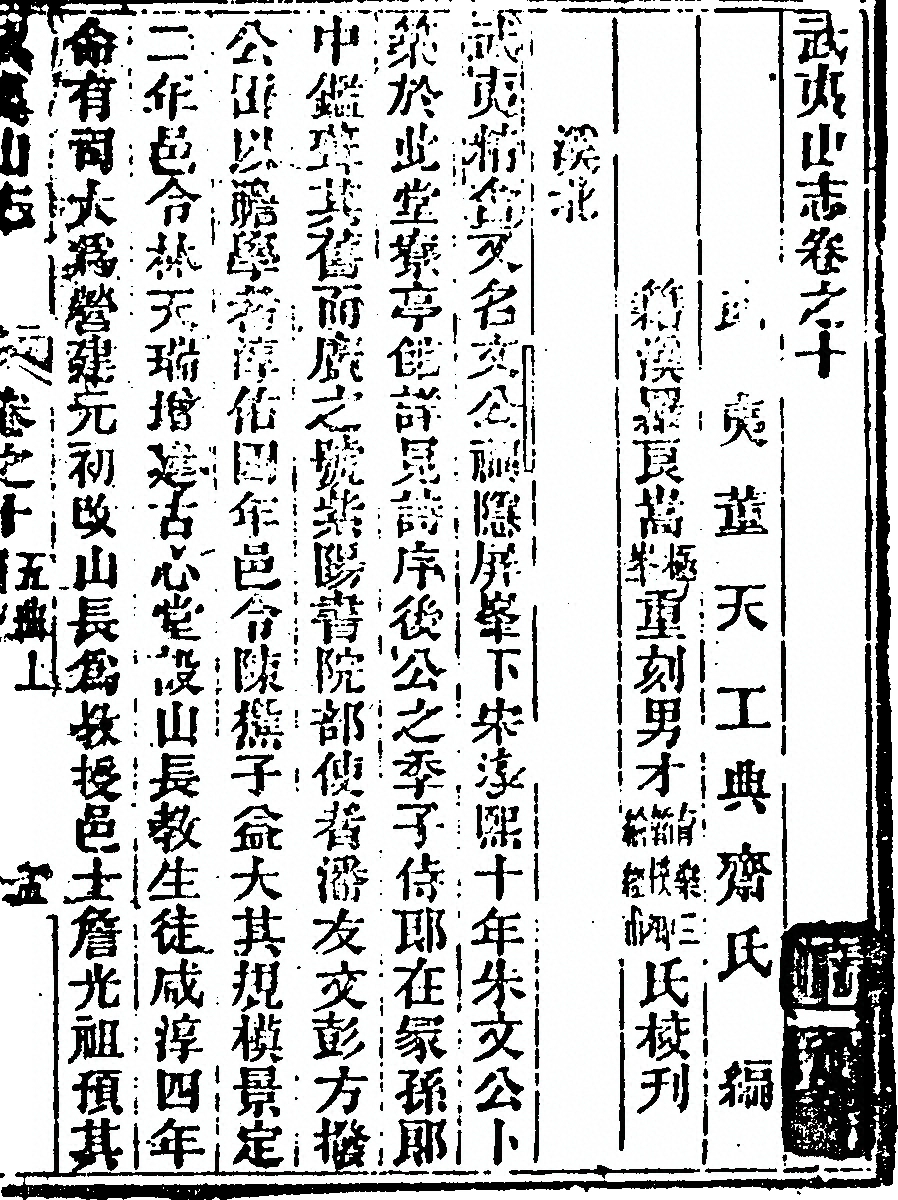 武夷山志卷之十
武夷董天工典齋氏編
籍溪羅良嵩 峯極 重刻男才 氏校刊
溪北
武夷精舍又名文公祠隱屏峯下宋淳熙十年朱文公卜
築於此堂寮亭館詳見詩序後公之季子侍郎在冢孫郎
中鑑葺其舊而廣之號紫陽書院部使者潘友文彭方撥
公田以贍學者淳佑四年邑令陳樵子益大其規模景定
二年邑令林天瑞增建古心堂設山長教生徒咸淳四年
命有司大爲營建元初改山長爲教授邑士詹光祖預其
武夷山志 卷之十 五曲上